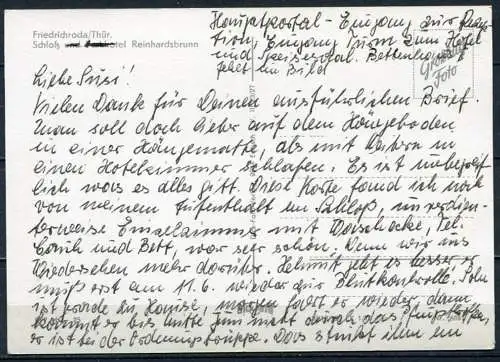 Friedrichroda/Thür.
Schloß und Parkhotel Reinhardsbrunn
Hauptportal - Eingang zur Rezep
tion, Eingang Turm zum Hotel
und Speisesaal. Bettenhaus
fehlt im Bild
Foto
Liebe Susi!
Vielen Dank für Deinen ausführlichen Brief.
Man soll doch lieber auf dem Hängeboden
in einer Hängematte, als mit Barbara in
einen Hotelzimmer schlafen. Es ist unbegreif
lich was es alles gitt. Diese Karte fand ich noch
von meinem Aufenthalt im Schloß, unverdien-
terweise Einzelzimmer mit Duschecke, Tel.
Couch und Bett, war sehr schön. Wenn wir uns
Wiedersehen mehr darüber. Helmut geht es besser er
muß erst am 11.6. wieder zur Blutkontrolle.
ist grade zu Hause, morgen fährt er wieder, dann
kommt er bis Mitte Juni nicht durch das
er ist bei der Ordnungsgruppe. Das stinkt ihm